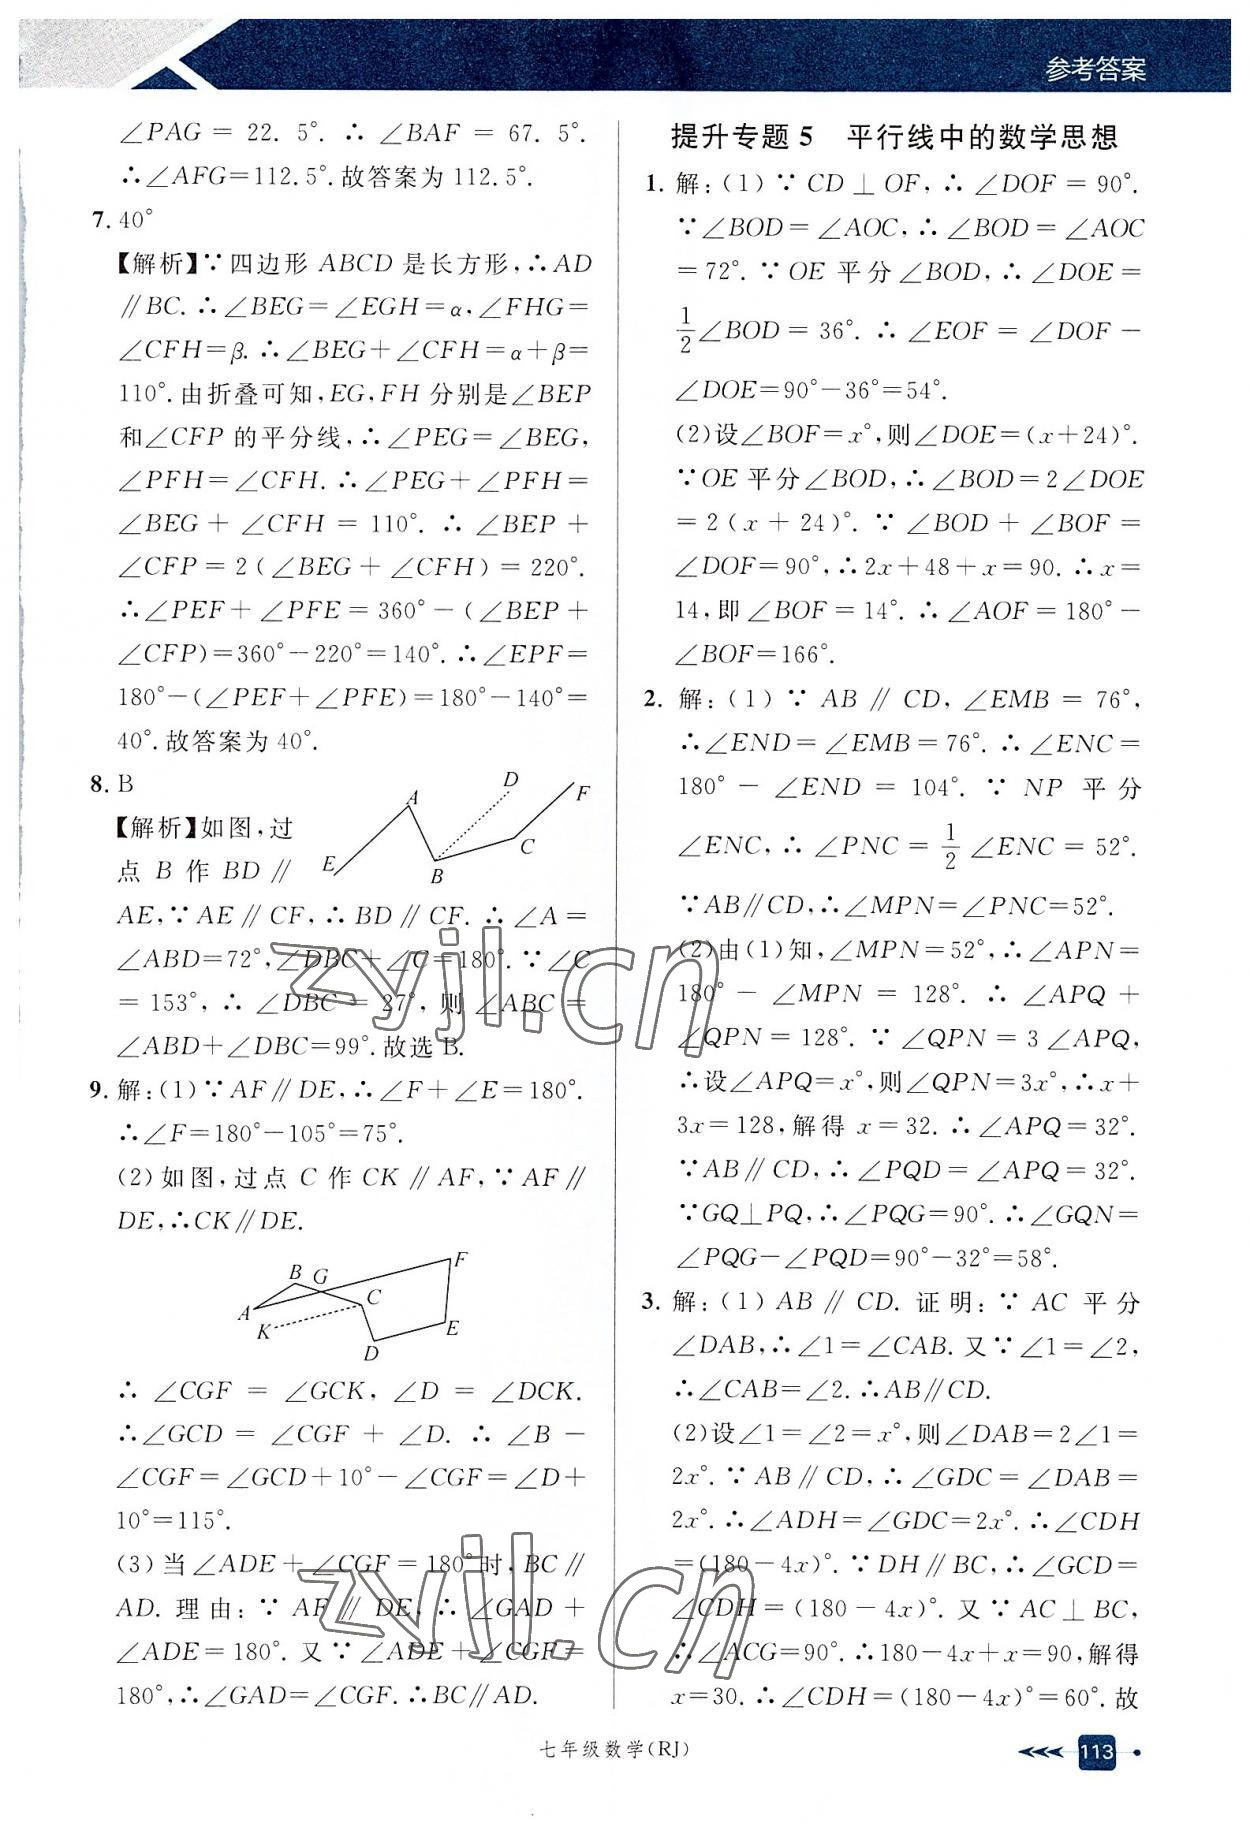 参考答案
∠PAG = 22. 5°. ∴ ∠BAF = 67. 5°.
∴∠AFG=112.5°.故答案为 112.5°.
7. 40°
【解析】∵四边形 ABCD 是长方形,∴AD
∥BC. ∴∠BEG=∠EGH=α,∠FHG=
∠CFH=β. ∴∠BEG+∠CFH=α+β=
110°.由折叠可知,EG,FH 分别是∠BEP
和∠CFP 的平分线,∴∠PEG=∠BEG,
∠PFH=∠CFH. ∴∠PEG+∠PFH=
∠BEG + ∠CFH = 110°. ∴ ∠BEP +
∠CFP = 2(∠BEG + ∠CFH) = 220°.
∴∠PEF+∠PFE=360°-(∠BEP+
∠CFP)=360°-220°=140°.∴∠EPF=
180°-(∠PEF+∠PFE)=180°-140°=
40°.故答案为 40°.
8. B
【解析】如图,过
点 B 作 BD ∥
A
D
F
E
B
C
AE,∵AE∥CF,∴BD∥CF. ∴∠A=
∠ABD=72°,∠DBC+∠C=180°.∵∠C
= 153°, ∴ ∠DBC = 27°, 则 ∠ABC =
∠ABD+∠DBC=99°.故选 B.
9. 解:(1)∵AF∥DE,∴∠F+∠E=180°.
∴∠F=180°-105°=75°.
(2)如图,过点 C 作 CK∥AF,∵AF∥
DE,∴CK∥DE.
B
G
F
A
C
K
E
D
∴ ∠CGF = ∠GCK, ∠D = ∠DCK.
∴∠GCD = ∠CGF + ∠D. ∴ ∠B -
∠CGF=∠GCD+10°-∠CGF=∠D+
10°=115°.
(3)当∠ADE+∠CGF=180°时,BC∥
AD. 理由:∵ AF ∥ DE, ∴ ∠GAD +
∠ADE=180°. 又∵ ∠ADE+∠CGF=
180°,∴∠GAD=∠CGF. ∴BC∥AD.
提升专题 5 平行线中的数学思想
1. 解:(1)∵CD⊥OF,∴∠DOF=90°.
∵∠BOD=∠AOC,∴∠BOD=∠AOC
=72°.∵OE 平分∠BOD,∴∠DOE=
1/2∠BOD = 36°. ∴ ∠EOF = ∠DOF -
∠DOE=90°-36°=54°.
(2)设∠BOF=x°,则∠DOE=(x+24)°.
∵OE 平分∠BOD,∴∠BOD=2∠DOE
=2(x+24)°. ∵ ∠BOD + ∠BOF =
∠DOF=90°,∴2x+48+x=90.∴x=
14,即∠BOF=14°.∴∠AOF=180°-
∠BOF=166°.
2. 解:(1)∵ AB ∥ CD, ∠EMB = 76°,
∴∠END=∠EMB=76°.∴∠ENC=
180° - ∠END = 104°. ∵ NP 平分
∠ENC, ∴ ∠PNC = 1/2 ∠ENC = 52°.
∵AB∥CD,∴∠MPN=∠PNC=52°.
(2)由(1)知,∠MPN=52°,∴∠APN=
180° - ∠MPN = 128°. ∴ ∠APQ +
∠QPN=128°. ∵ ∠QPN = 3∠APQ,
∴设∠APQ=x°,则∠QPN=3x°,∴x+
3x=128,解得 x=32.∴∠APQ=32°.
∵AB∥CD,∴∠PQD=∠APQ=32°.
∵GQ⊥PQ,∴∠PQG=90°.∴∠GQN=
∠PQG-∠PQD=90°-32°=58°.
3. 解:(1)AB∥CD. 证明:∵AC 平分
∠DAB,∴∠1=∠CAB. 又∵∠1=∠2,
∴∠CAB=∠2.∴AB∥CD.
(2)设∠1=∠2=x°,则∠DAB=2∠1=
2x°.∵AB∥CD,∴∠GDC=∠DAB=
2x°.∴∠ADH=∠GDC=2x°.∴∠CDH
=(180-4x)°.∵DH∥BC,∴∠GCD=
∠CDH=(180-4x)°. 又∵AC⊥BC,
∴∠ACG=90°.∴180-4x+x=90,解得
x=30.∴∠CDH=(180-4x)°=60°.故
zyjl.cn
zyjl.cn
七年级数学(RJ)
113